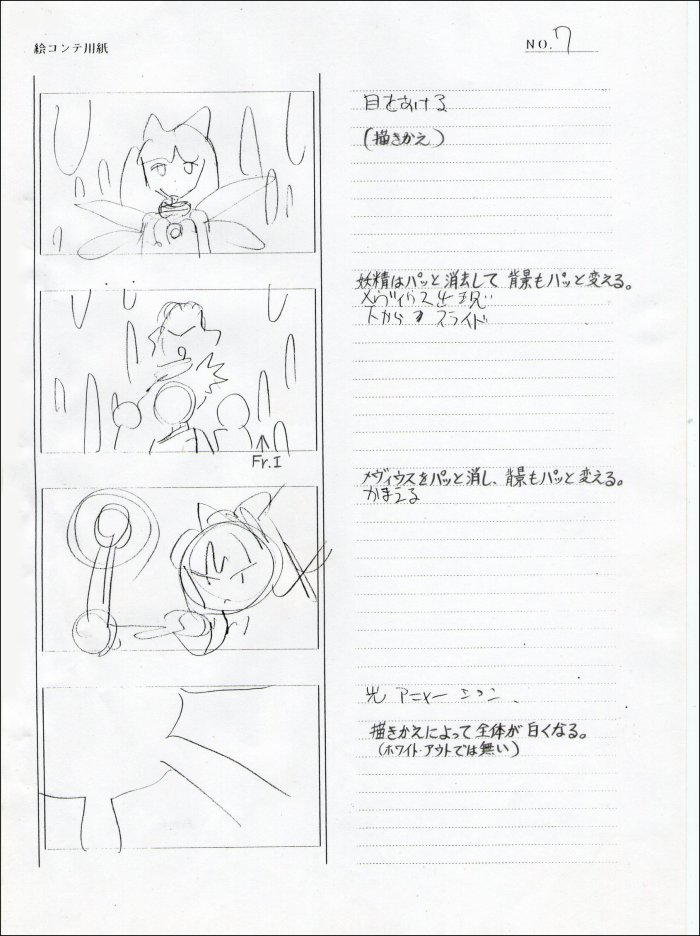 絵コンテ用紙
NO. 7
目をあける
(描きかえ)
妖精はパッと消去して 背景もパッと変える。
メヴィウス出現
下から スライド
Fr.I
メヴィウスをパッと消し、背景もパッと変える。
かまえる
光 アニメーション、
描きかえによって 全体が 白くなる。
(ホワイト・アウトでは無い)